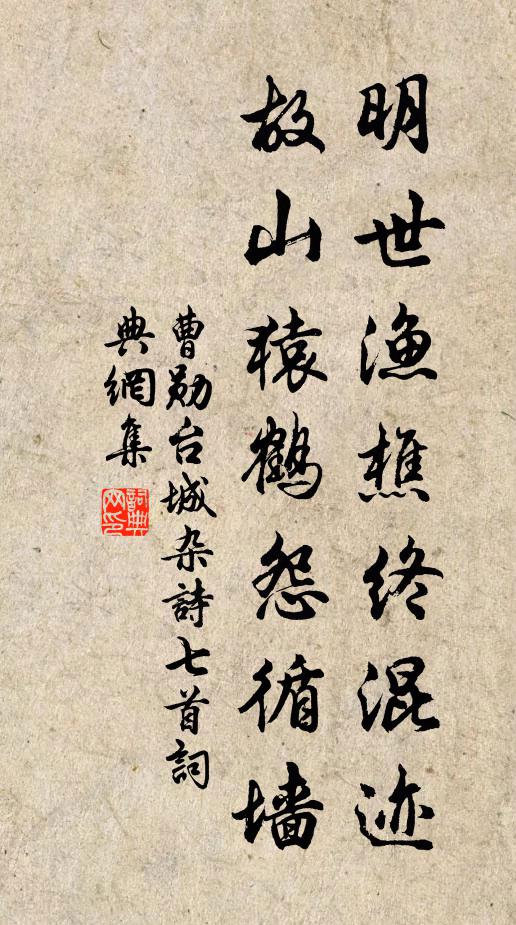 明世渔樵终混迹
故山猿鹤怨循墙
曹勋台城杂詩七首詞
典網集
詞典
网印